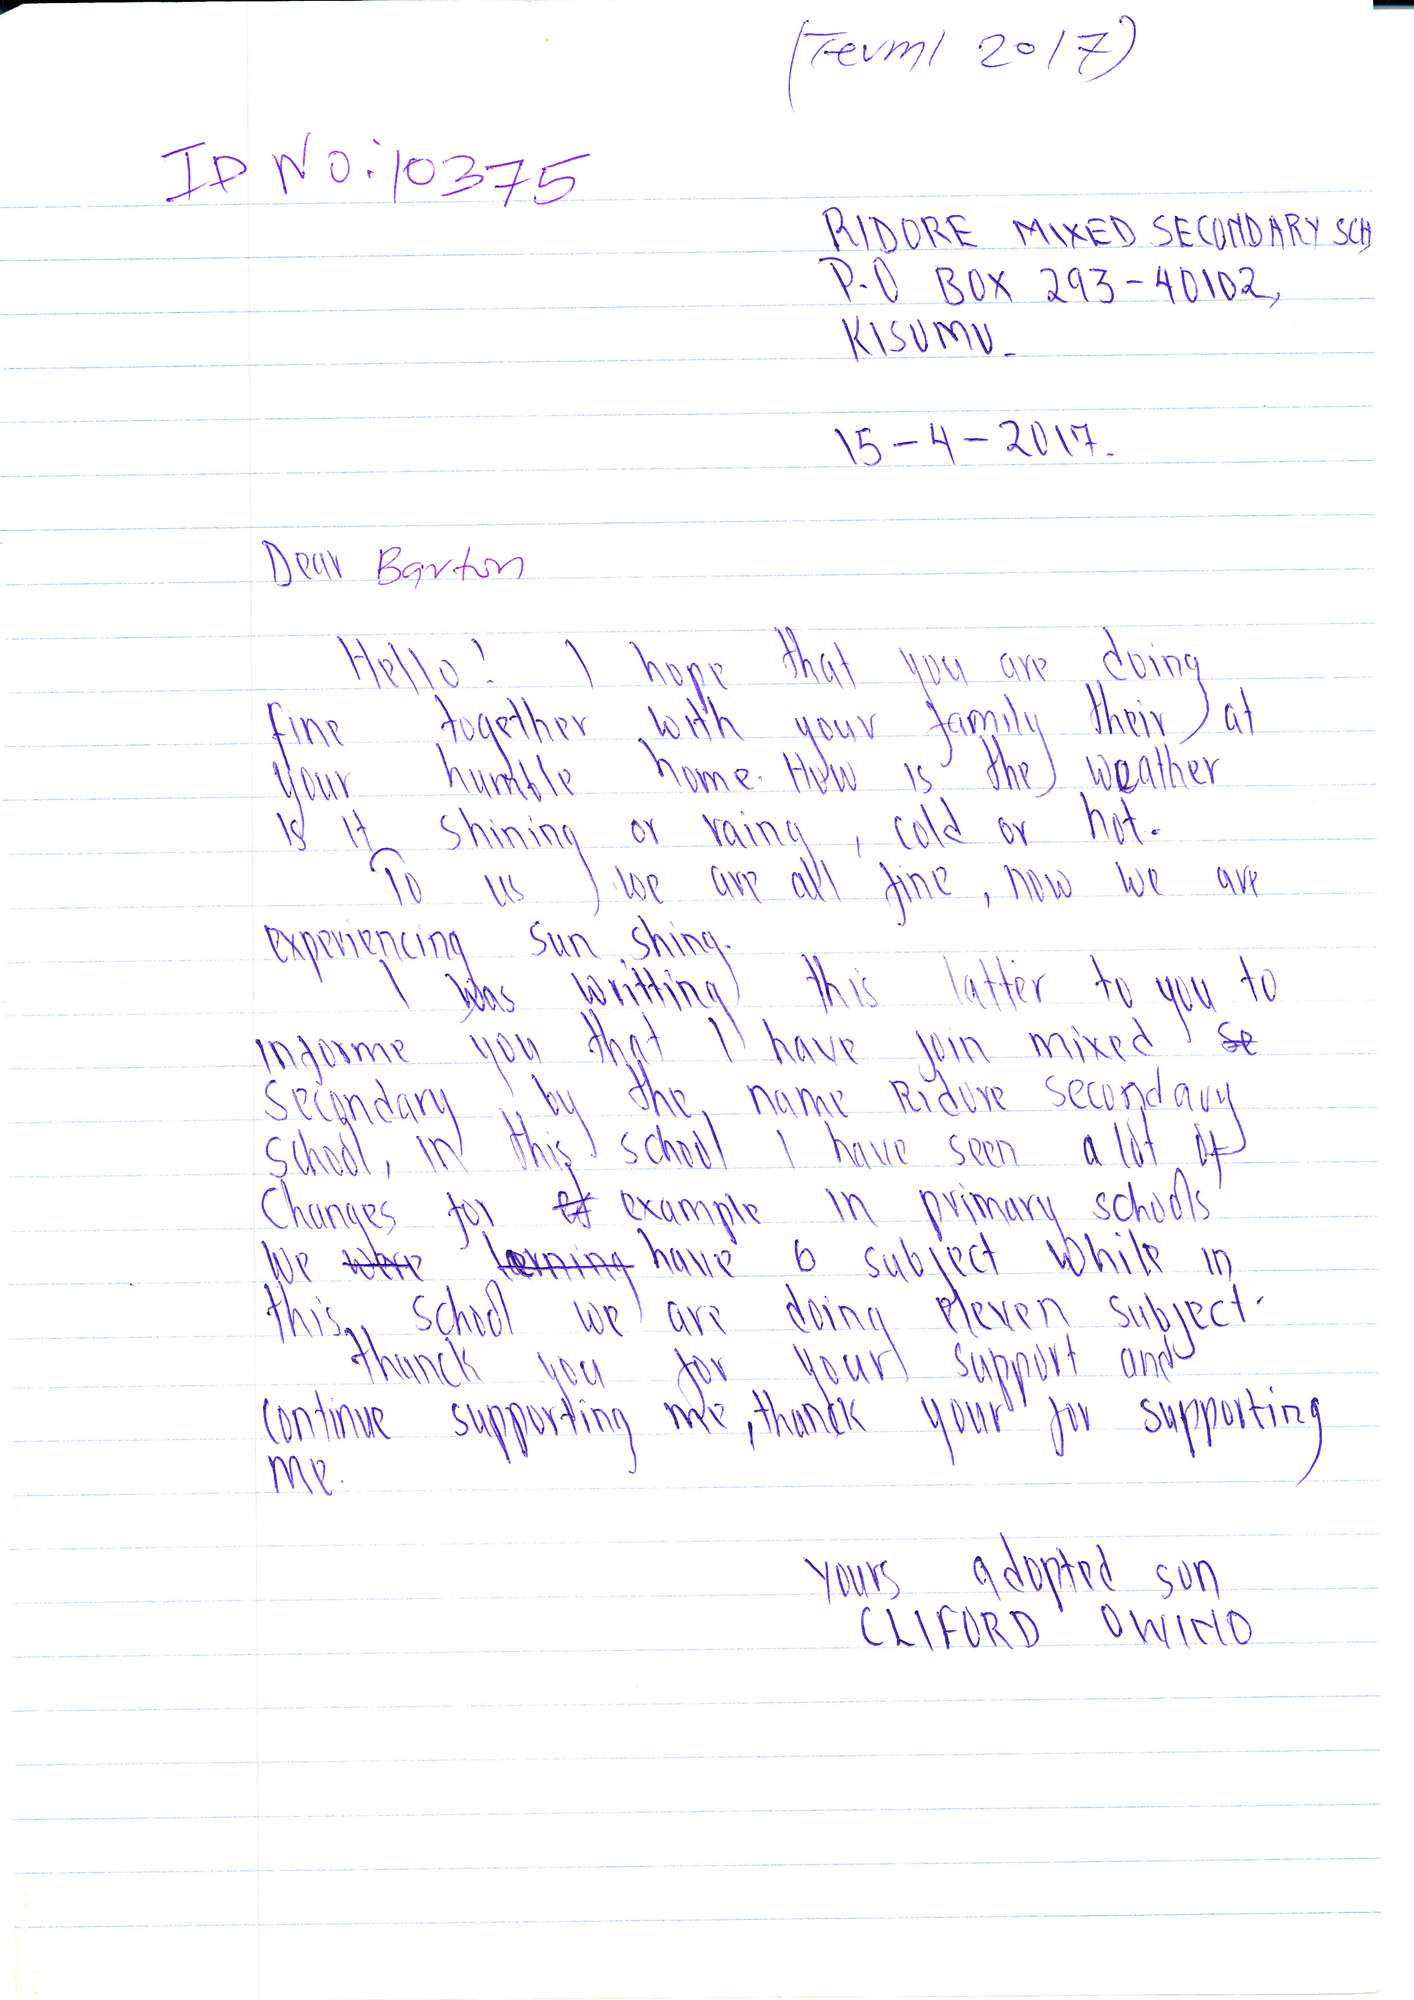 (Term1 2017)
ID No:10375
RIDORE MIXED SECONDARY SCH
P.O BOX 293-40102,
KISUMU.
15-4-2017.
Dear Barton
Hello! I hope that you are doing
fine together with your family their at
your humble home. How is the weather
is it shining or raing, cold or hot.
To us we are all fine, now we are
experiencing sun shing.
I was writting this latter to you to
informe you that I have join mixed se
secondary by the name Ridore secondary
school, in this school I have seen a lot of
changes for of example in primary schools
we were lerning have 6 subject while in
this school we are doing eleven subject.
thanck you for your support and
continue supporting me, thanck your for supporting
me.
yours adopted son
CLIFORD OWINO